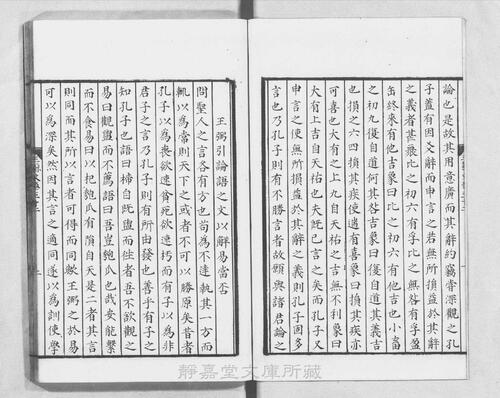 論也是故其用意廣而其辭約竊嘗深觀之孔
子蓋有因爻辭而申言之若無所損益於其辭
之義者甚衆比之初六有孚比之無咎有孚盈
缶終來有他吉象曰比之初六有他吉也小畜
之初九復自道何其咎吉象曰復自道其義吉
也損之六四損其疾使遄有喜象曰損其疾亦
可喜也大有之上九自天祐之吉無不利象曰
大有上吉自天祐也夫旣已言之矣而孔子又
申言之使無所損益於其辭之義則孔子固多
言也乃孔子則有不勝言者故願與諸君論之
王弼引論語之文以解易當否
問聖人之言各有方也苟為不達執其一方而
輒以為當則天下之或者不可以勝原矣昔者
孔子以為喪欲速貧死欲速朽而有子以為非
君子之言乃孔子則有所由發也善乎有子之
知孔子也語曰禘自既灌而往者吾不欲觀之
易曰觀盥而不薦語曰吾豈匏瓜也哉安能繫
而不食易曰以杞匏瓜有隕自天是二者其言
則同而其所以言者可得而同歟王弼之於易
可以為深矣然因其言之適同遂以為訓使學
靜嘉堂文庫所藏